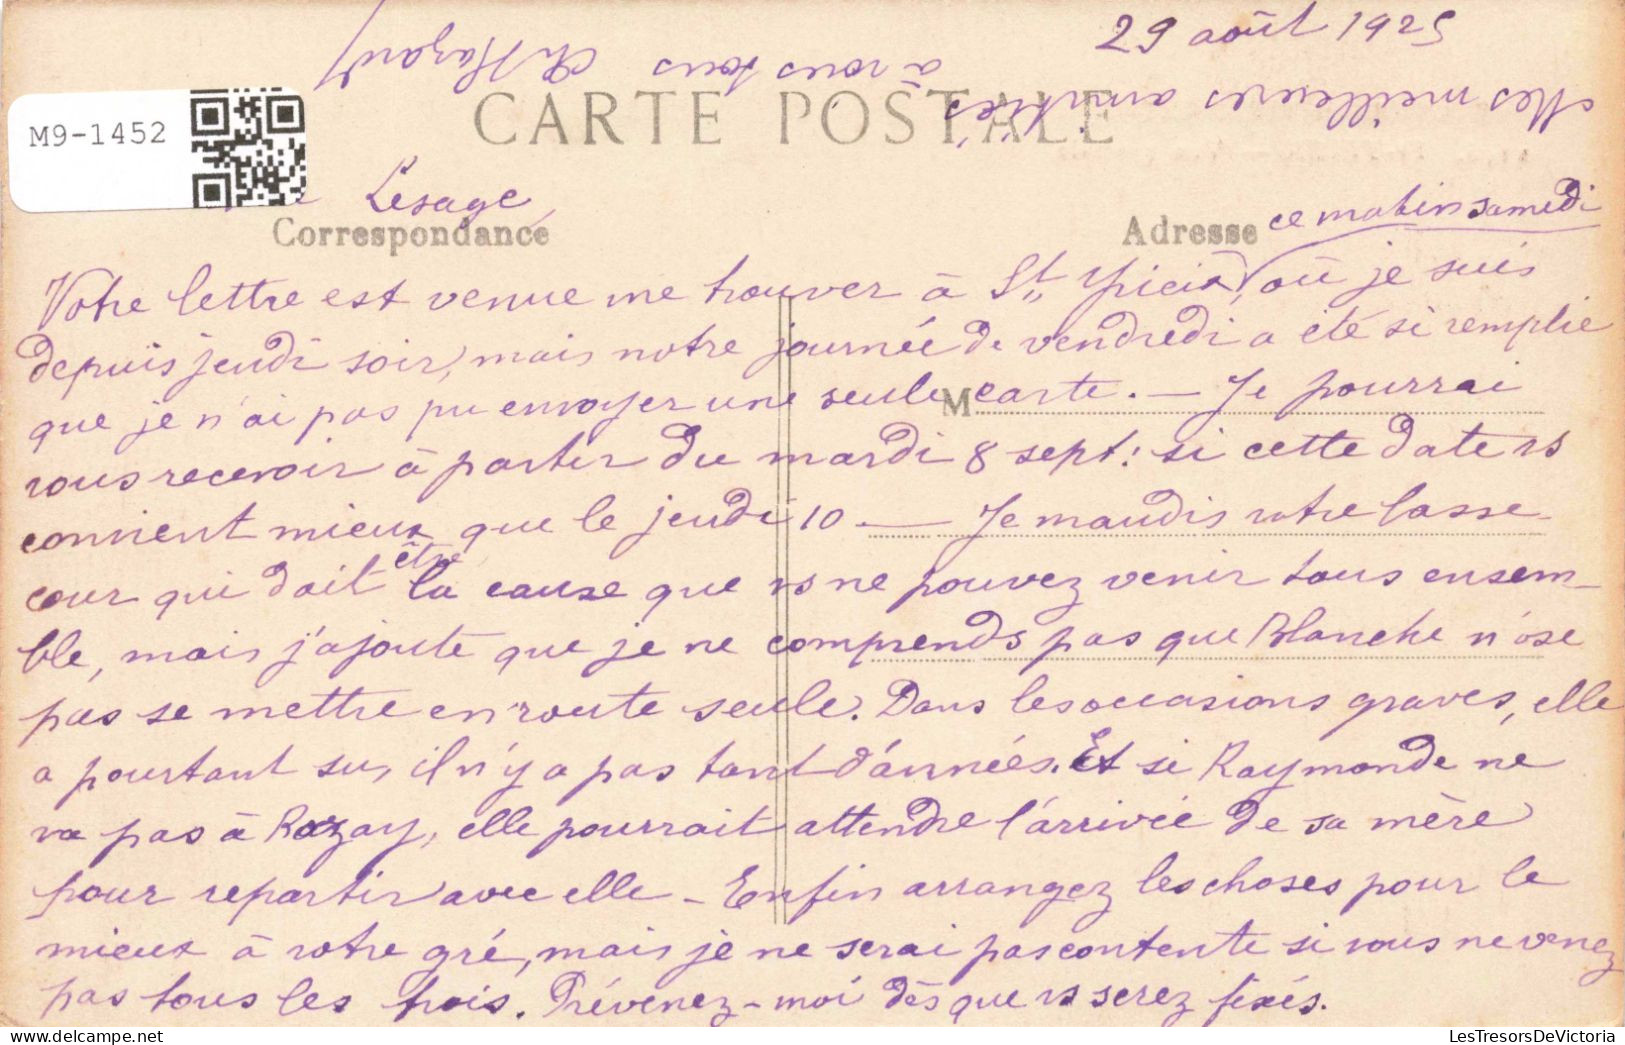 29 août 1925
M9-1452
CARTE POSTALE
Lesage
Correspondance
Adresse
ce matin samedi
Votre lettre est venue me trouver à St, où je suis
depuis jeudi soir, mais notre journée de vendredi a été si remplie
que je n'ai pas pu envoyer une seule carte. — Je pourrai
M
vous recevoir à partir du mardi 8 sept: si cette date vs
convient mieux que le jeudi 10. — Je maudis votre basse
cour qui doit être la cause que vs ne pouvez venir tous ensem-
ble, mais j'ajoute que je ne comprends pas que Blanche n'ose
pas se mettre en route seule. Dans les occasions graves, elle
a pourtant su, il n'y a pas tant d'années. Et si Raymonde ne
va pas à Rozay, elle pourrait attendre l'arrivée de sa mère
pour repartir avec elle - Enfin arrangez les choses pour le
mieux à votre gré, mais je ne serai pas contente si vous ne venez
pas tous les trois. Prévenez-moi dès que vs serez fixés.
Mes meilleures amitiés
à vous tous Ch Hazard
LesTresorsDeVictoria.com